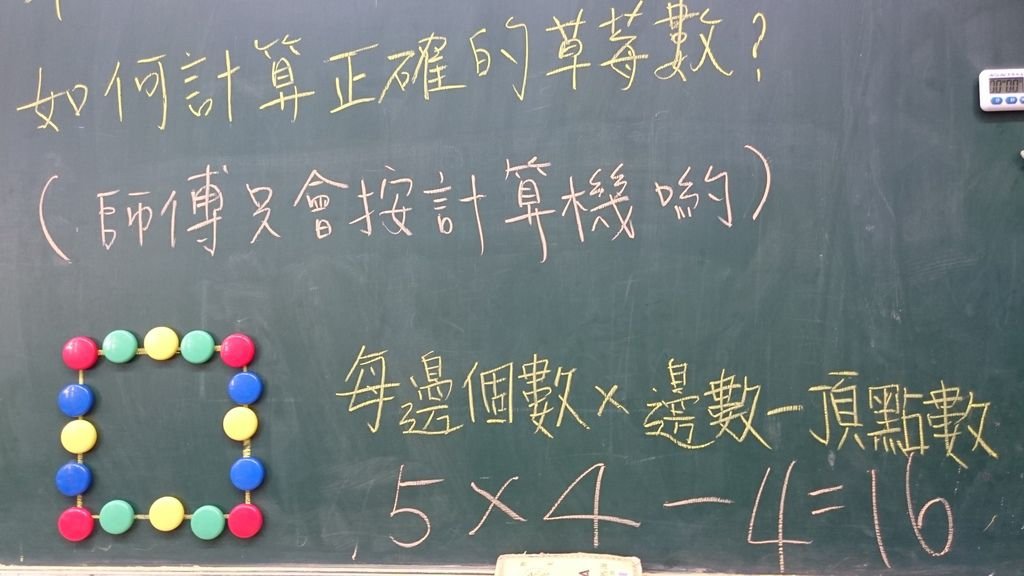 如何計算正確的草莓數?
(師傅只會按計算機喲)
每邊個數×邊數-頂點數
5×4-4=16